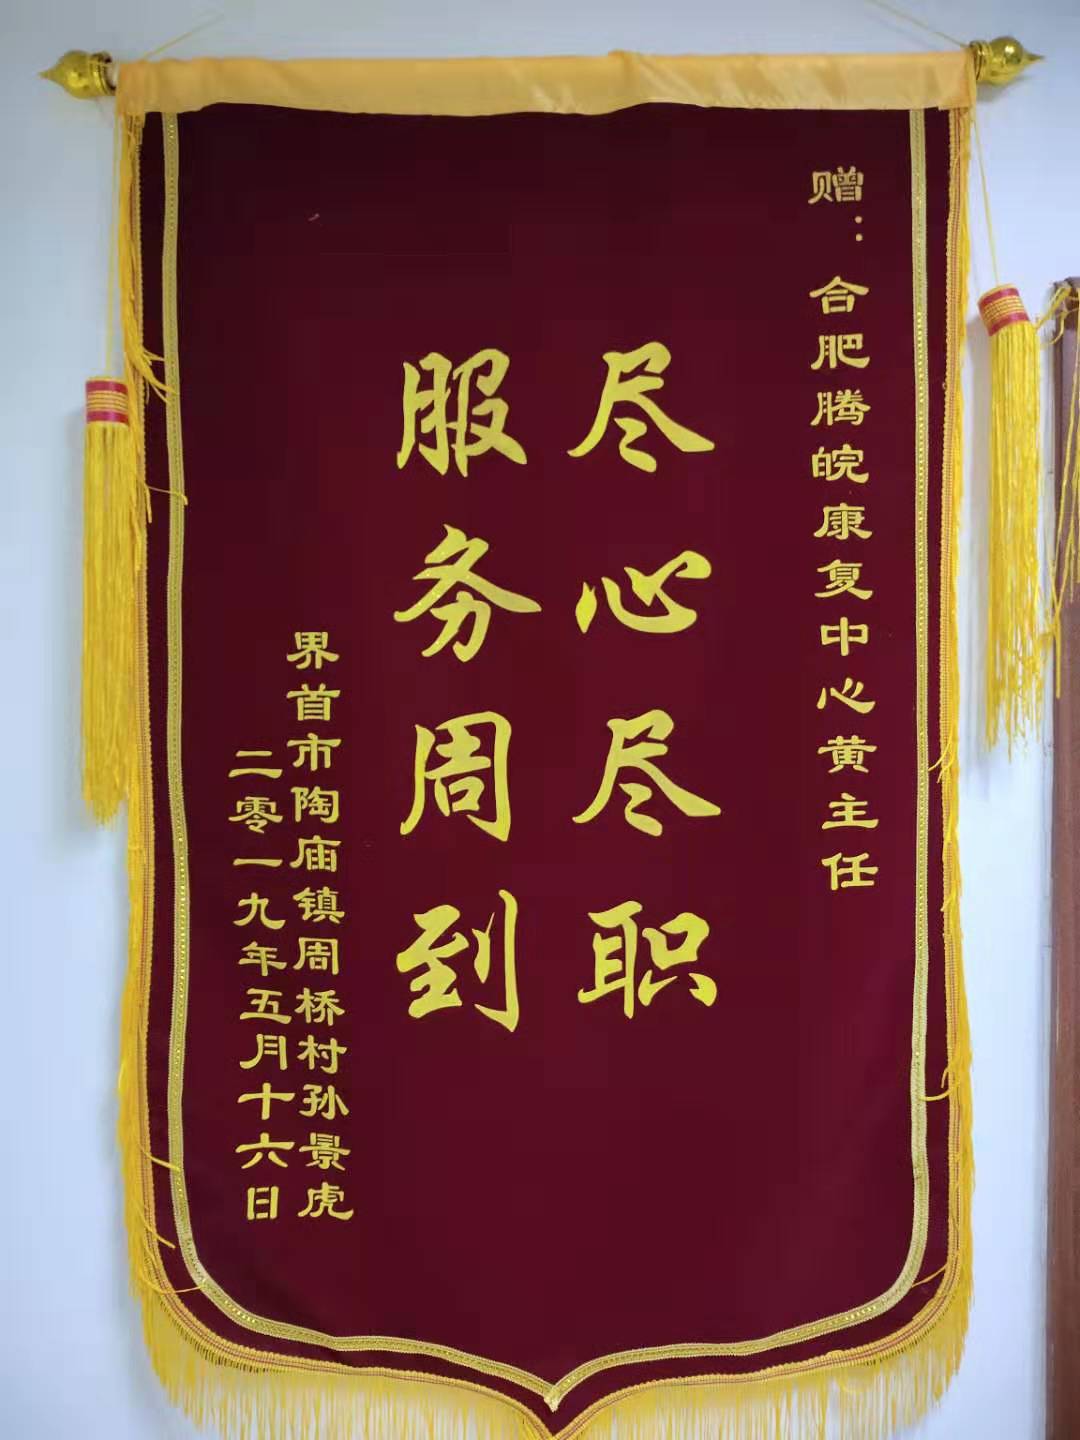 赠：合肥腾皖康复中心黄主任
尽心尽职
服务周到
界首市陶庙镇周桥村孙景虎
二零一九年五月十六日